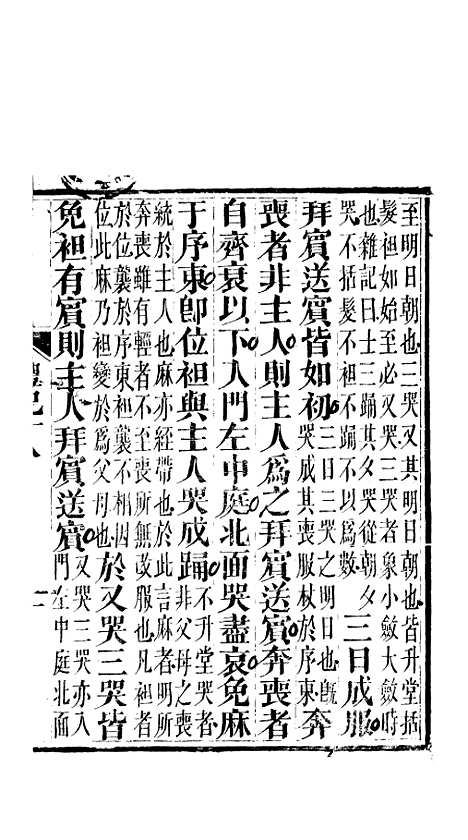 至明日朝也三哭又其明日朝也皆升堂括
髮袒如始至必又哭三哭者象小斂大斂時
也雜記曰士三踊其夕哭從朝夕
哭不括髮不袒不踊不以爲數
三日成服
拜賓送賓皆如初
三日三哭之明日也旣
哭成其喪服杖於序東
奔
喪者非主人則主人爲之拜賓送賓奔喪者
自齊衰以下入門左中庭北面哭盡哀免麻
于序東卽位袒與主人哭成踊
不升堂哭者
非父母之喪
統於主人也麻亦絰帶也於此言麻者明所
奔喪雖有輕者不至喪所無改服也凡袒者
於位襲於序東袒襲不相因
位此麻乃袒變於爲父母也
於又哭三哭皆
免袒有賓則主人拜賓送賓
又哭三哭亦入
門左中庭北面